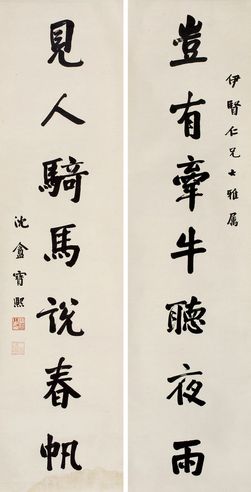 伊賢仁兄大雅属
豈有牽牛聽夜雨
見人騎馬説春帆
沈盦寶熙